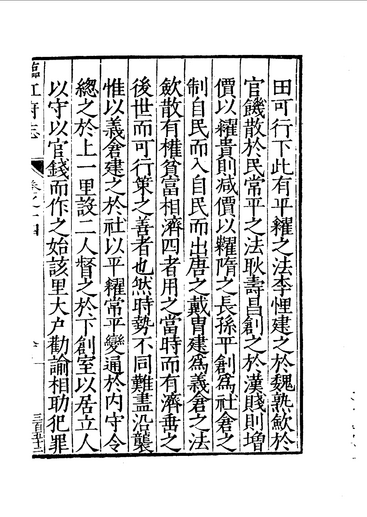 田可行下此有平糴之法李悝建之於魏熟歛於
官饑散於民常平之法耿壽昌創之於漢賤則增
價以糴貴則减價以糶隋之長孫平創爲社倉之
制自民而入自民而出唐之戴胄建爲義倉之法
歛散有權貧富相濟四者用之當時而有濟垂之
後世而可行策之善者也然時勢不同難盡沿襲
惟以義倉建之於社以平糴常平變通於内守令
總之於上一里設二人督之於下創室以居立人
以守以官錢而作之始該里大户勸諭相助犯罪
臨江府志
卷之十四
三百五十二